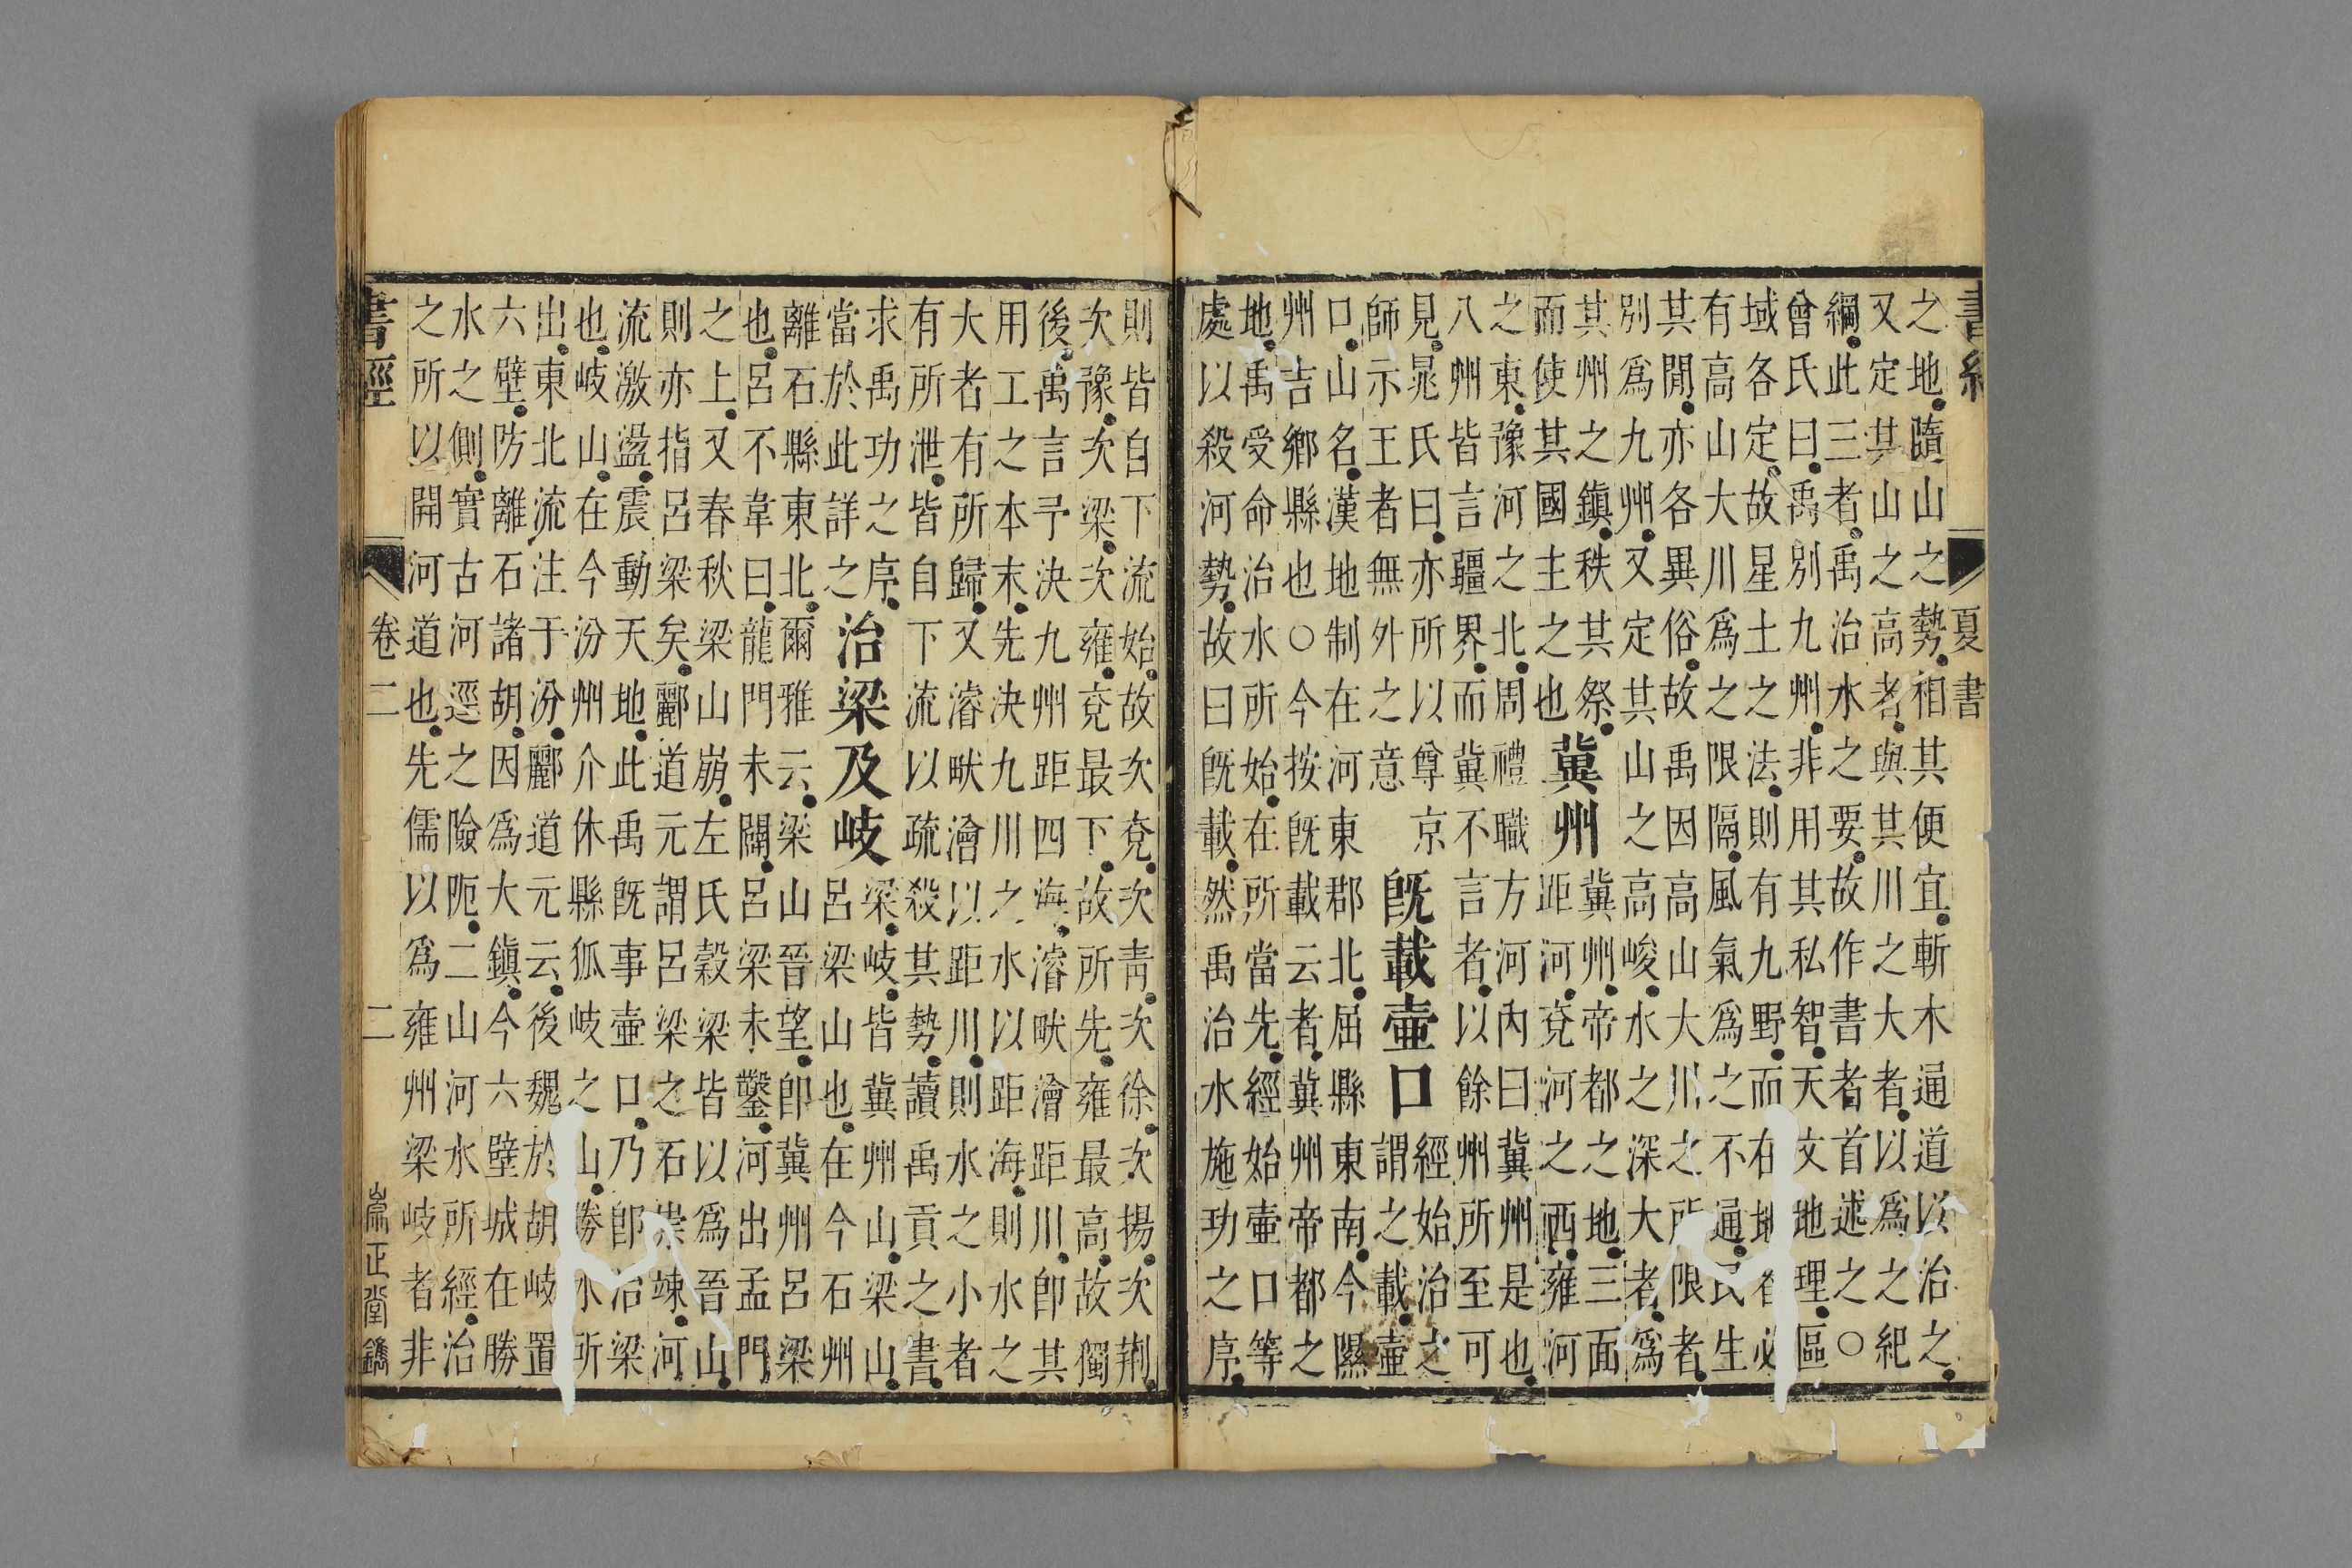 書經 夏書
之地隨山之勢相其便宜斬木通道以治之
又定其山之高者與其川之大者以爲之紀
綱此三者禹治水之要故作書者首述之○
曾氏曰禹別九州非用其私智天文地理區
域各定故星土之法則有九野而在地者必
有高山大川爲之限隔風氣爲之不通民生
其間亦各異俗故禹因高山大川之所限者
別爲九州又定其山之高峻水之深大者爲
其州之鎭秩其祭
而使其國主之也
冀州
冀州帝都之地三面
距河兗河之西雍河
之東豫河之北周禮職方河內曰冀州是也
八州皆言疆界而冀不言者以餘州所至可
見晁氏曰亦所以尊京
師示王者無外之意
旣載壺口
經始治之
謂之載壺
口山名漢地制在河東郡北屈縣東南今隰
州吉鄉縣也○今按旣載云者冀州帝都之
地禹受命治水所始在所當先經始壺口等
處以殺河勢故曰旣載然禹治水施功之序
則皆自下流始故次兗次靑次徐次揚次荆
次豫次梁次雍兗最下故所先雍最高故獨
後禹言予決九州距四海濬畎澮距川卽其
用工之本末先決九川之水以距海則水之
大者有所歸又濬畎澮以距川則水之小者
有所泄皆自下流以疏殺其勢讀禹貢之書
求禹功之序
當於此詳之
治梁及岐
梁岐皆冀州山梁山
呂梁山也在今石州
離石縣東北爾雅云梁山晉望卽冀州呂梁
也呂不韋曰龍門未闢呂梁未鑿河出孟門
之上又春秋梁山崩左氏穀梁皆以爲晉山
則亦指呂梁矣酈道元謂呂梁之石崇竦河
流激盪震動天地此禹旣事壺口乃卽治梁
也岐山在今汾州介休縣狐岐之山勝水所
出東北流注于汾酈道元云後魏於胡岐置
六壁防離石諸胡因爲大鎭今六壁城在勝
水之側實古河逕之險阨二山河水所經治
之所以開河道也先儒以爲雍州梁岐者非
書經 卷二 二 崇正堂鐫